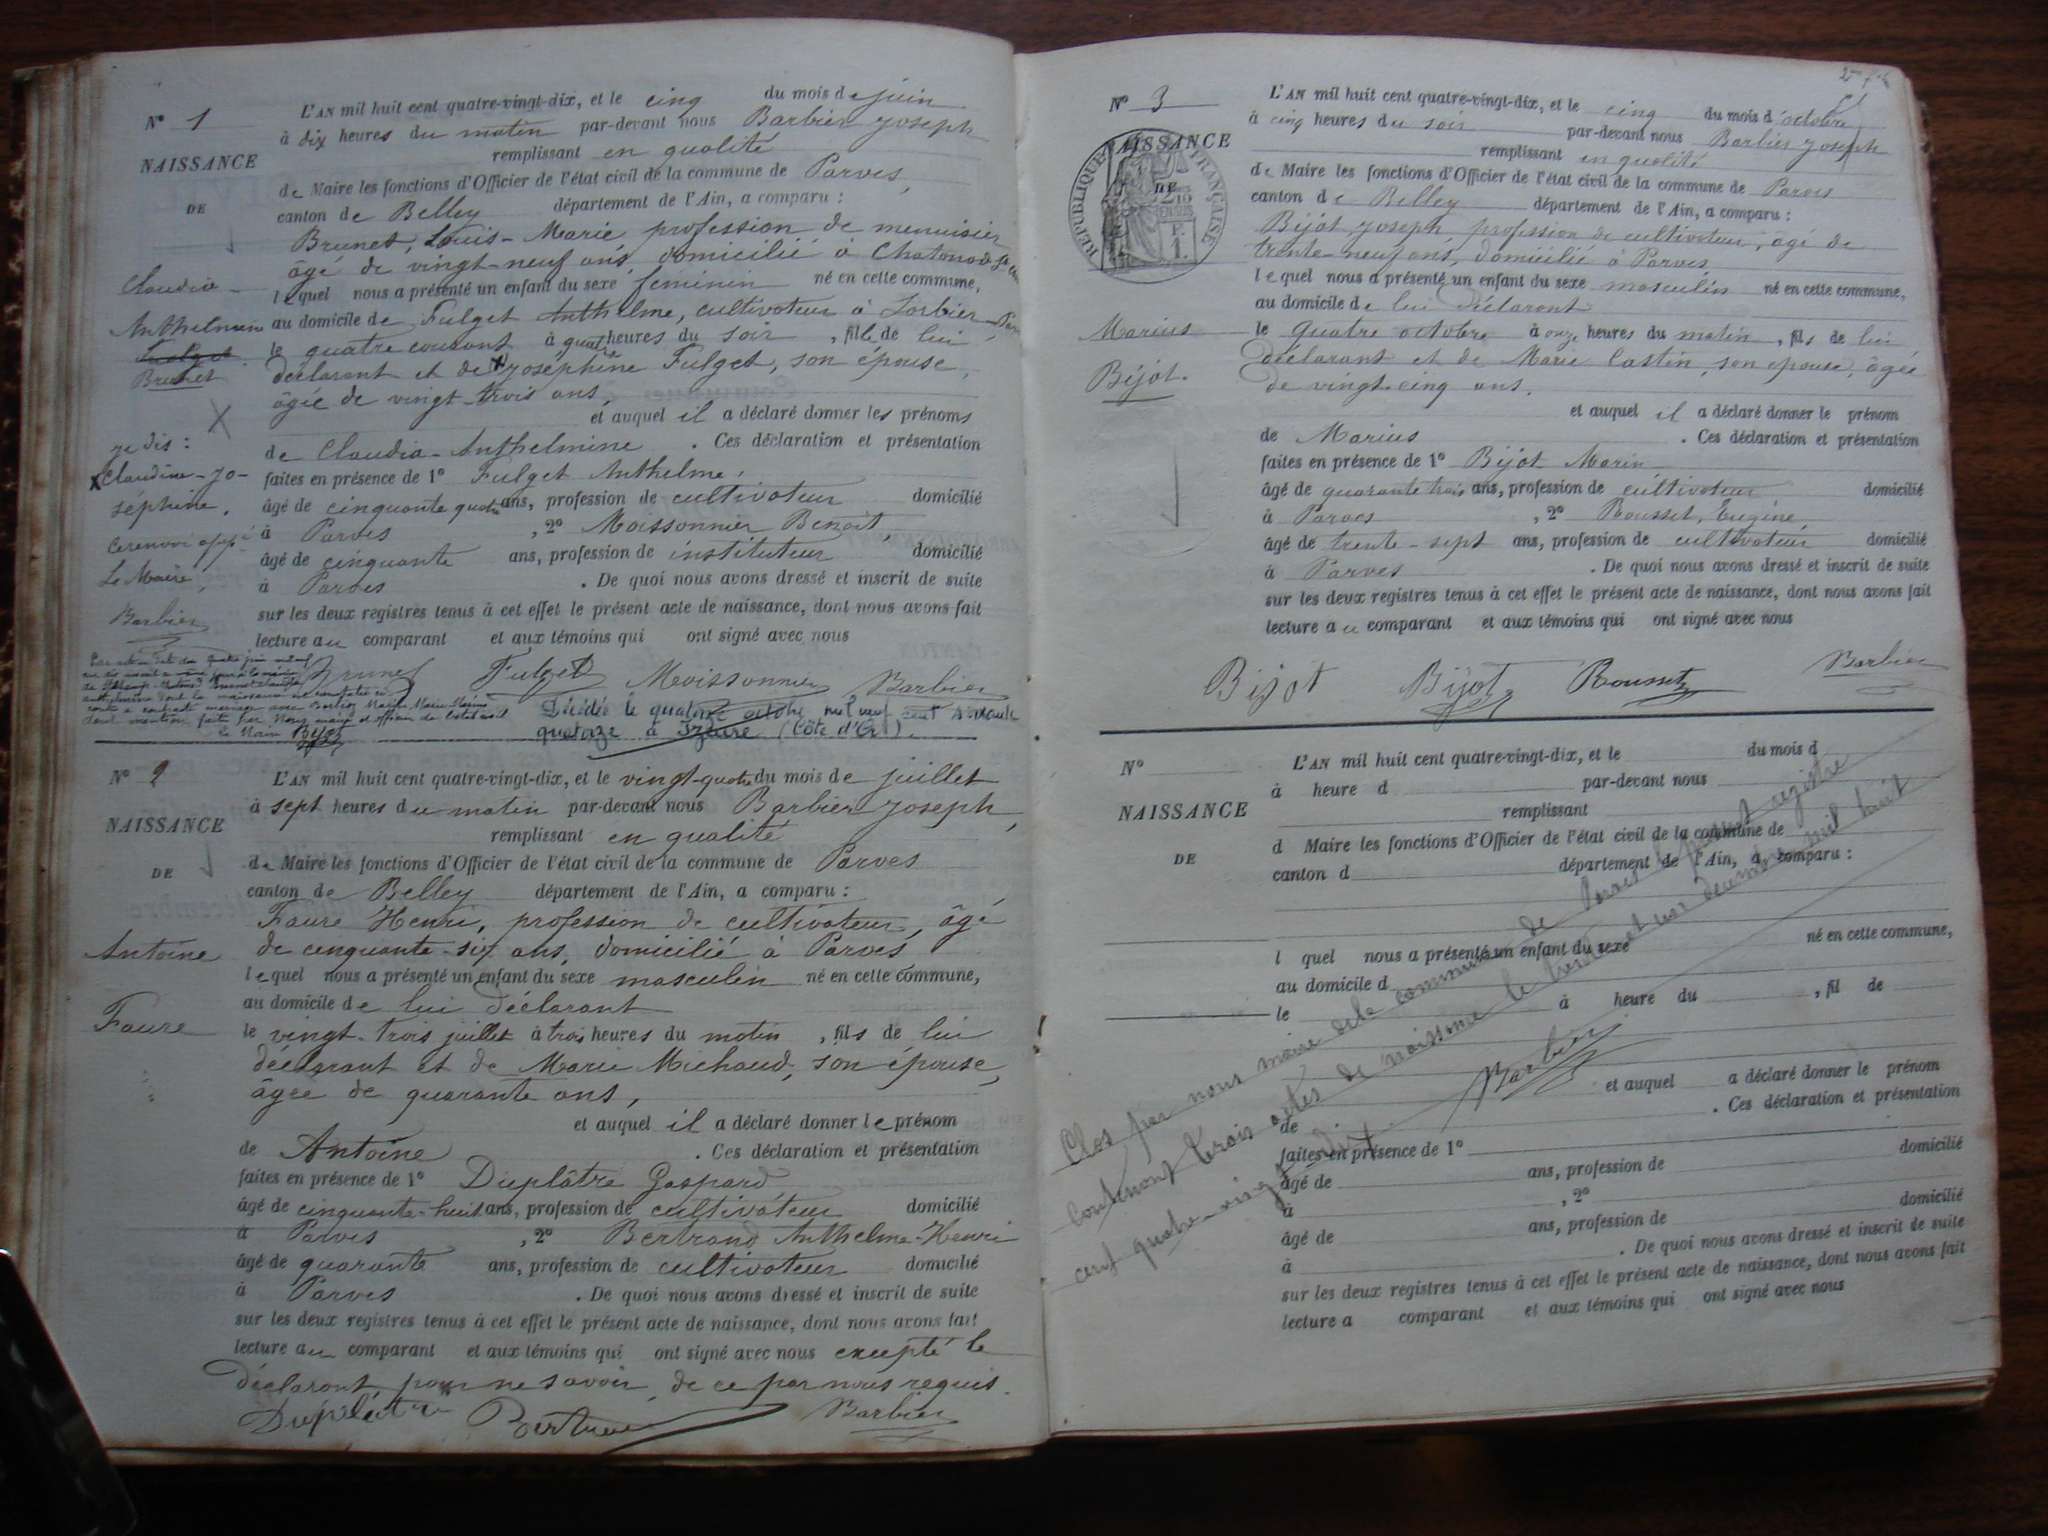 N° 1
NAISSANCE
DE
Claudia-
Anthelmine
Brunet
je dis :
Claudine-Jo-
séphine.
Le Maire,
Barbier
L'AN mil huit cent quatre-vingt-dix, et le cinq du mois de juin
à dix heures du matin par-devant nous Barbier Joseph
remplissant en qualité
de Maire les fonctions d'Officier de l'état civil de la commune de Parves,
canton de Belley département de l'Ain, a comparu :
Brunet, Louis-Marie profession de menuisier
âgé de vingt-neuf ans, domicilié à
lequel nous a présenté un enfant du sexe féminin né en cette commune,
au domicile de Fulget Anthelme, cultivateur à Sorbier
le quatre courant à quatre heures du soir, fille de lui
déclarant et de Joséphine Fulget, son épouse,
âgée de vingt-trois ans,
et auquel il a déclaré donner les prénoms
de Claudia-Anthelmine. Ces déclaration et présentation
faites en présence de 1° Fulget Anthelme,
âgé de cinquante quatre ans, profession de cultivateur domicilié
à Parves, 2° Moissonnier Benoit,
âgé de cinquante ans, profession de instituteur domicilié
à Parves. De quoi nous avons dressé et inscrit de suite
sur les deux registres tenus à cet effet le présent acte de naissance, dont nous avons fait
lecture au comparant et aux témoins qui ont signé avec nous
Brunet Fulget Moissonnier Barbier
Décédée le quatorze octobre mil neuf cent soixante
quatorze à Izeure (Côte d'Or).
N° 2
NAISSANCE
DE
Antoine
Faure
L'AN mil huit cent quatre-vingt-dix, et le vingt-quatre du mois de juillet
à sept heures du matin par-devant nous Barbier Joseph,
remplissant en qualité
de Maire les fonctions d'Officier de l'état civil de la commune de Parves
canton de Belley département de l'Ain, a comparu :
Faure Henri, profession de cultivateur, âgé
de cinquante-six ans, domicilié à Parves
lequel nous a présenté un enfant du sexe masculin né en cette commune,
au domicile de lui déclarant
le vingt-trois juillet à trois heures du matin, fils de lui
déclarant et de Marie Michaud, son épouse,
âgée de quarante ans,
et auquel il a déclaré donner le prénom
de Antoine. Ces déclaration et présentation
faites en présence de 1° Duplâtre Gaspard
âgé de cinquante-huit ans, profession de cultivateur domicilié
à Parves, 2° Bertrand Anthelme-Henri
âgé de quarante ans, profession de cultivateur domicilié
à Parves. De quoi nous avons dressé et inscrit de suite
sur les deux registres tenus à cet effet le présent acte de naissance, dont nous avons fait
lecture au comparant et aux témoins qui ont signé avec nous excepté le
déclarant pour ne savoir, de ce par nous requis.
Duplâtre Bertrand Barbier
N° 3
NAISSANCE
DE
RÉPUBLIQUE FRANÇAISE
Marius
Bijot.
L'AN mil huit cent quatre-vingt-dix, et le cinq du mois d'octobre
à cinq heures du soir par-devant nous Barbier Joseph
remplissant en qualité
de Maire les fonctions d'Officier de l'état civil de la commune de Parves
canton de Belley département de l'Ain, a comparu :
Bijot Joseph profession de cultivateur, âgé de
trente-neuf ans, domicilié à Parves
lequel nous a présenté un enfant du sexe masculin né en cette commune,
au domicile de lui déclarant
le quatre octobre à onze heures du matin, fils de lui
déclarant et de Marie Castin, son épouse, âgée
de vingt-cinq ans.
et auquel il a déclaré donner le prénom
de Marius. Ces déclaration et présentation
faites en présence de 1° Bijot Marin
âgé de quarante trois ans, profession de cultivateur domicilié
à Parves, 2° Rousset, Eugène,
âgé de trente-sept ans, profession de cultivateur domicilié
à Parves. De quoi nous avons dressé et inscrit de suite
sur les deux registres tenus à cet effet le présent acte de naissance, dont nous avons fait
lecture au comparant et aux témoins qui ont signé avec nous
Bijot Bijot Rousset Barbier
N°
NAISSANCE
DE
L'AN mil huit cent quatre-vingt-dix, et le du mois d
à heure d par-devant nous
remplissant
d Maire les fonctions d'Officier de l'état civil de la commune de
canton d département de l'Ain, a comparu :
l quel nous a présenté un enfant du sexe né en cette commune,
au domicile d
le à heure du , fil de
et auquel a déclaré donner le prénom
de . Ces déclaration et présentation
faites en présence de 1°
âgé de ans, profession de domicilié
à , 2°
âgé de ans, profession de domicilié
à . De quoi nous avons dressé et inscrit de suite
sur les deux registres tenus à cet effet le présent acte de naissance, dont nous avons fait
lecture a comparant et aux témoins qui ont signé avec nous
Clos par nous maire de la commune de Parves le présent registre
contenant trois actes de naissance le trente et un décembre mil huit
cent quatre-vingt-dix
Barbier